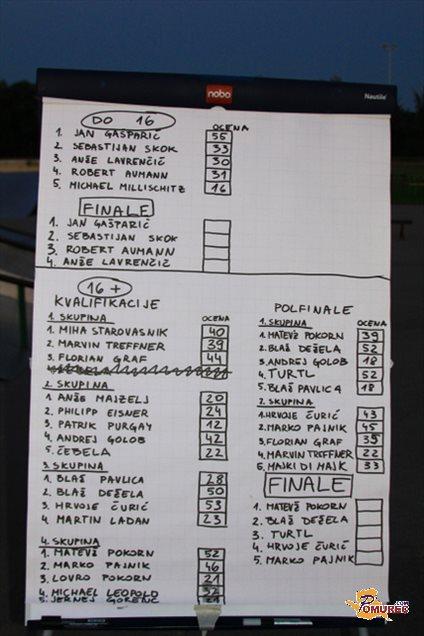 nobo
Nautile
DO 16
OCENA
1. JAN GAŠPARIČ 55
2. SEBASTIJAN SKOK 33
3. ANŽE LAVRENČIČ 30
4. ROBERT AUMANN 31
5. MICHAEL MILLISCHITZ 16
FINALE
1. JAN GAŠPARIČ
2. SEBASTIJAN SKOK
3. ROBERT AUMANN
4. ANŽE LAVRENČIČ
16 +
KVALIFIKACIJE
1. SKUPINA OCENA
1. MIHA STAROVASNIK 40
2. MARVIN TREFFNER 39
3. FLORIAN GRAF 44
2. SKUPINA
1. ANŽE MAJZELJ 20
2. PHILIPP EISNER 24
3. PATRIK PURGAY 12
4. ANDREJ GOLOB 42
5. ČEBELA 22
3. SKUPINA
1. BLAŽ PAVLICA 28
2. BLAŽ DEŽELA 50
3. HRVOJE ČURIĆ 53
4. MARTIN LADAN 23
4. SKUPINA
1. MATEVŽ POKORN 52
2. MARKO PAJNIK 46
3. LOVRO POKORN 21
4. MICHAEL LEOPOLD 32
5. JERNEJ GORENC
POLFINALE
1. SKUPINA OCENA
1. MATEVŽ POKORN 39
2. BLAŽ DEŽELA 52
3. ANDREJ GOLOB 18
4. TURTL 52
5. BLAŽ PAVLICA 18
2. SKUPINA
1. HRVOJE ČURIĆ 43
2. MARKO PAJNIK 45
3. FLORIAN GRAF 39
4. MARVIN TREFFNER 22
5. MAJKI DI MAJK 33
FINALE
1. MATEVŽ POKORN
2. BLAŽ DEŽELA
3. TURTL
4. HRVOJE ČURIĆ
5. MARKO PAJNIK
POMUREC.com